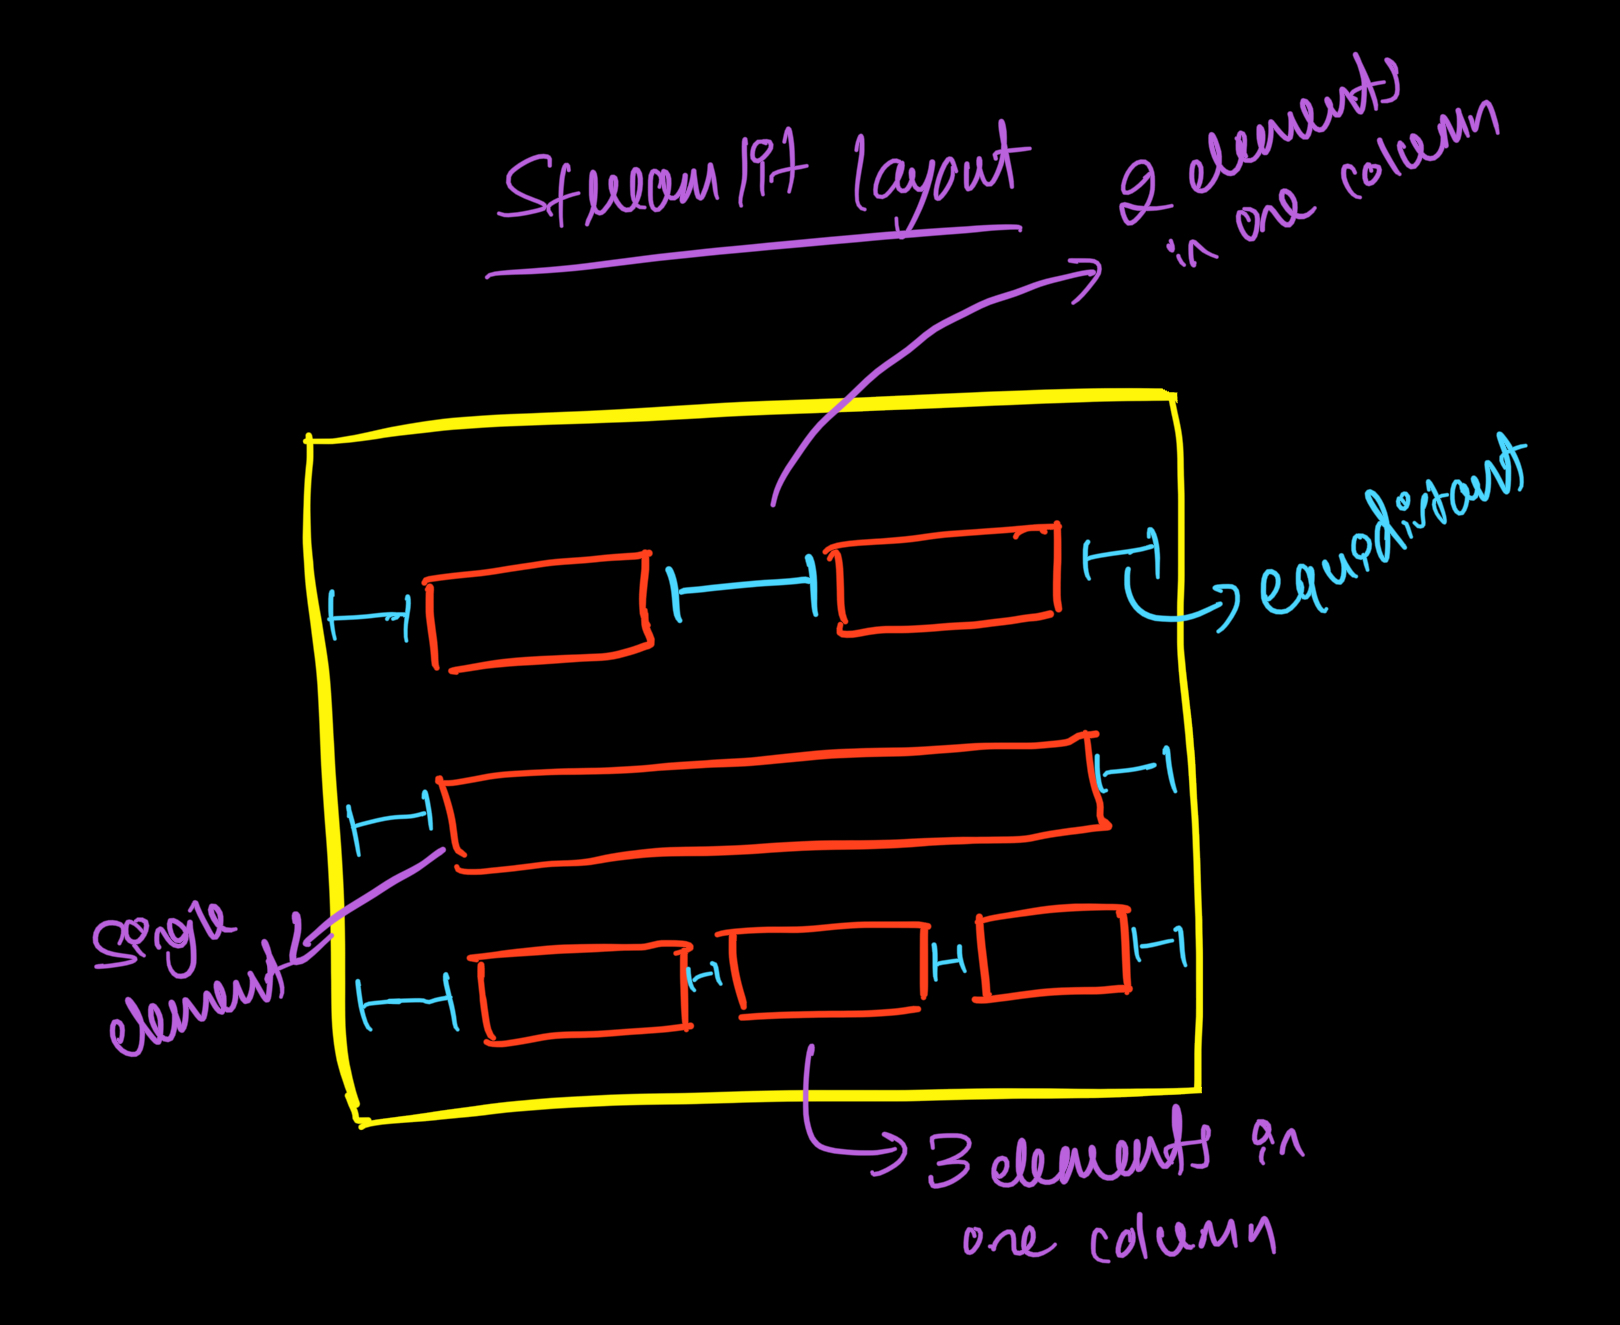 Streamlit layout
2 elements
in one column
equidistant
single
element
3 elements in
one column